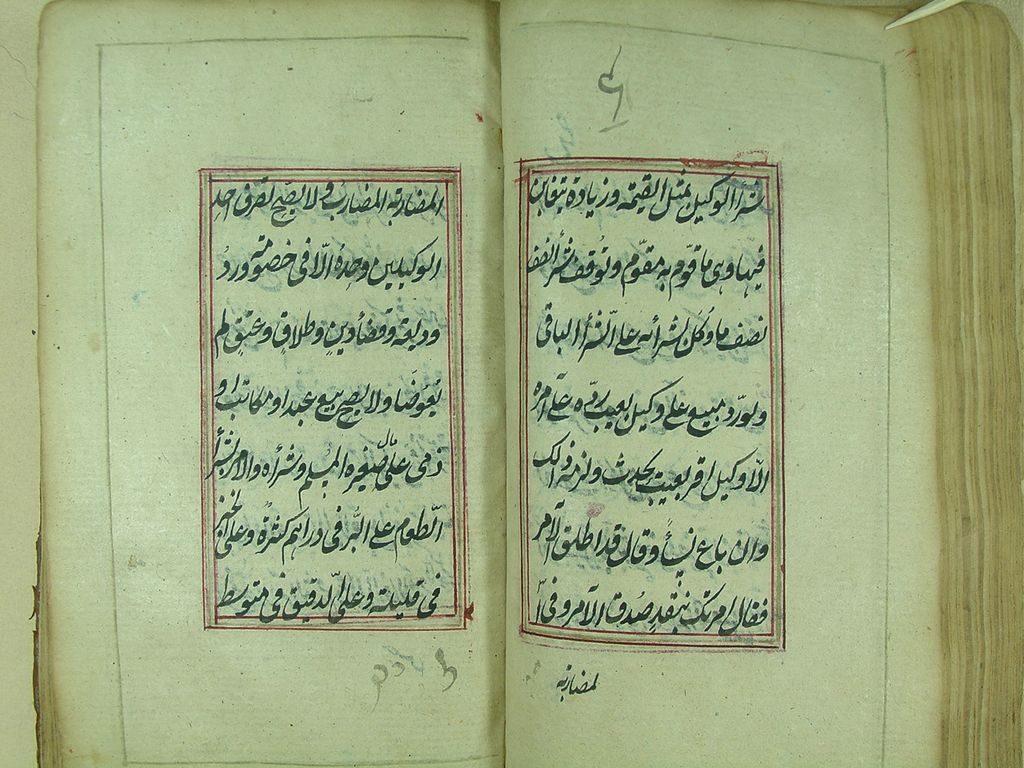 شرا الوكيل بمثل القيمة وزيادة يتغابن
فيها وهى ما قوم به مقوّم وتوقف شرأ النصف
نصف ما وكل بشرائه على الشرأ الباقى
ولو رد مبيع على وكيل بعيب رده على آمره
الا وكيل اقر بعيب يحدث ولزمه ذلك
وان باع نسأ وقال قد اطلق الآمر
فقال امرتك بنقد صدق الآمر وفى ا
لمضاربة
المضاربة المضارب ولا يصح تصرف احد
الوكيلين وحده الا فى خصومته ورد
وديعة وقضأ دين وطلاق وعتق لم
يعوضا ولا يصح بيع عبد او مكاتب او
ذمى على مال صغيره المسلم وشرأه والامر بشرأ
الطعام على البر فى دراهم كثرة وعلى الخبز
فى قليلة وعلى الدقيق فى متوسط